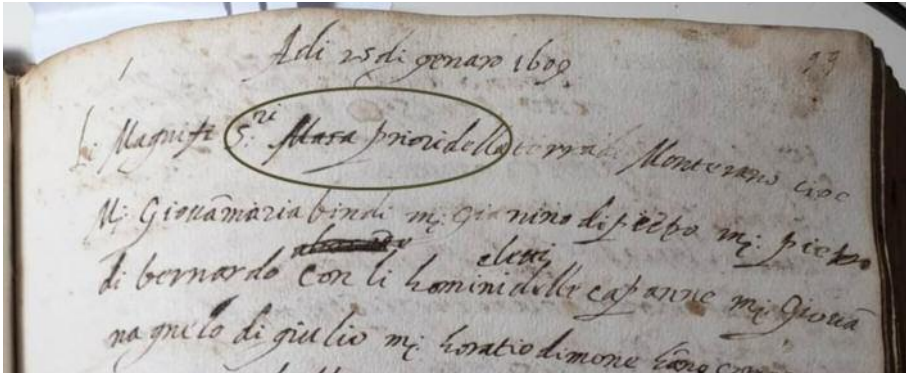 Adi 25 di genaro 1609
93
li Magnifi s.ri Masa priori della terra di Monterano cioe
M: Giouāmaria bindi m: gianino di pietro m: pietro
di bernardo con li homini eletti delle capanne m: Giouā
nagnelo di giulio m: horatio dimone